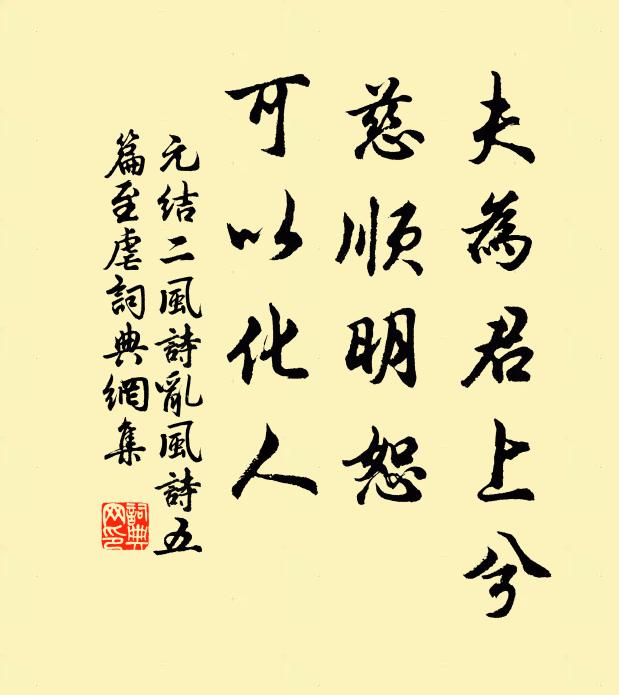 夫為君上兮
慈順明恕
可以化人
元結二風詩亂風詩五
篇至虐詞典網集
詞典
网印